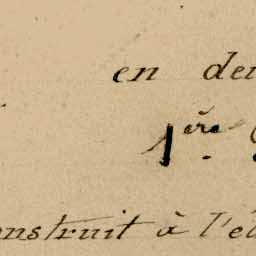 en deu
1ère
onstruit à l'é